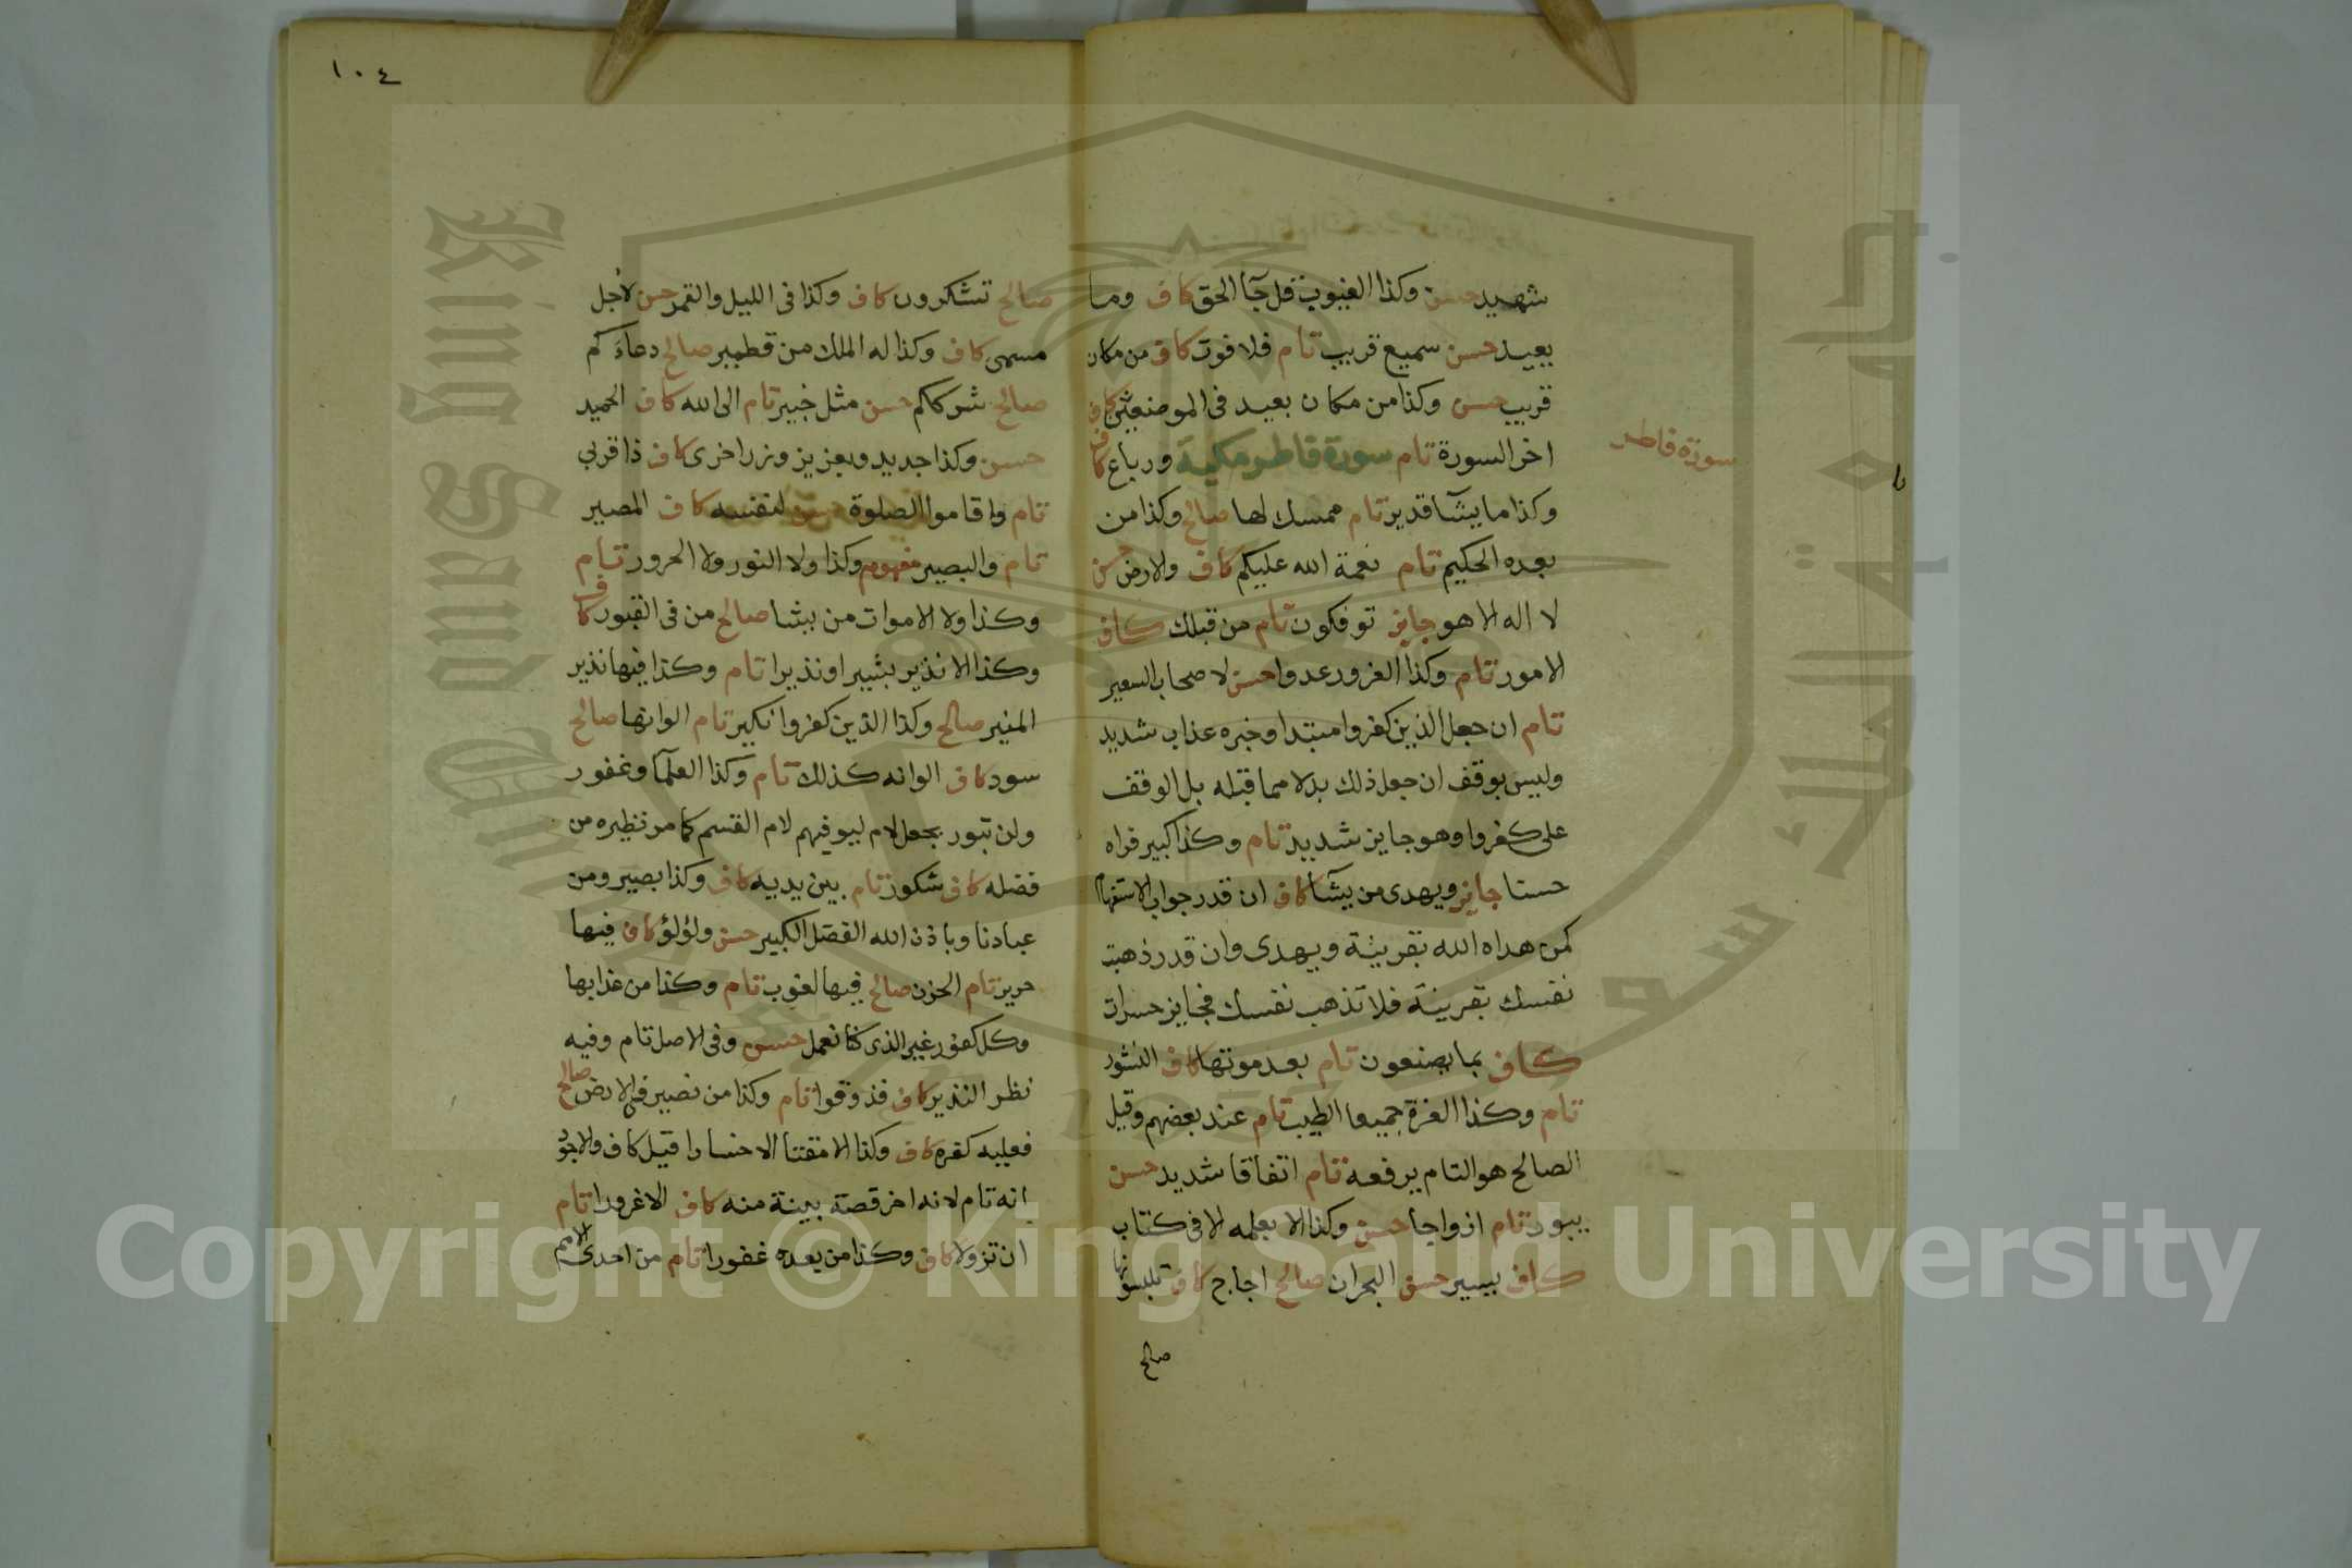 شهيد حسن وكذا الغيوب قل جآ الحق كاف وما
يعيد حسن سميع قريب تام فلا فوت كاف من مكان
قريب حسن وكذا من مكان بعيد فى الموضعين كاف
اخر السورة تام سورة فاطر مكية ورباع كاف
سورة فاطر
وكذا ما يشآ قدير تام ممسك لها صالح وكذا من
بعده الحكيم تام نعمة الله عليكم كاف والارض حسن
لا اله الا هو جايز توفكون تام من قبلك كاف
الامور تام وكذا الغرور عدوا حسن لاصحاب السعير
تام ان جعل الذين كفروا مبتدا وخبره عذاب شديد
وليس بوقف ان جعل ذلك بدلا مما قبله بل الوقف
على كفروا وهو جايز شديد تام وكذا كبير فراه
حسنا جايز ويهدى من يشآ كاف ان قدر جواب الاستفهام
كمن هداه الله بقرينة ويهدى وان قدر ذهبت
نفسك بقرينة فلا تذهب نفسك فجايز حسرات
كاف بما يصنعون تام بعد موتها كاف النشور
تام وكذا العزة جميعا الطيب تام عند بعضهم وقيل
الصالح هو التام يرفعه تام اتفاقا شديد حسن
يبور تام ازواجا حسن وكذا الا بعلمه لا فى كتاب
كاف يسير حسن البحران صالح اجاج كاف تلبسونها
صالح
١٠٤
صالح تشكرون كاف وكذا فى الليل والقمر حسن لاجل
مسمى كاف وكذا له الملك من قطمير صالح دعاءكم
صالح شرككم حسن مثل خبير تام الى الله كاف الحميد
حسن وكذا جديد وبعزيز وزر اخرى كاف ذا قربى
تام واقاموا الصلوة حسن لنفسه كاف المصير
تام والبصير مفهوم وكذا ولا النور ولا الحرور تام
وكذا ولا الاموات من يشا صالح من فى القبور كاف
وكذا الا نذير بشيرا ونذيرا تام وكذا فيها نذير
المنير صالح وكذا الذين كفروا نكير تام الوانها صالح
سود كاف الوانه كذلك تام وكذا العلمآ وغفور
ولن تبور بجعل لام ليوفيهم لام القسم كما مر نظيره من
فضله كاف شكور تام بين يديه كاف وكذا بصير ومن
عبادنا وباذن الله الفضل الكبير حسن ولؤلؤ كاف فيها
حرير تام الحزن صالح فيها لغوب تام وكذا من عذابها
وكل كفور غير الذى كنا نعمل حسن وفى الاصل تام وفيه
نظر النذير كاف فذوقوا تام وكذا من نصير فى الارض صالح
فعليه كفره كاف وكذا الا مقتا الا خسارا قيل كاف والاجود
انه تام لانه اخر قصة بينة منه كاف الا غرورا تام
ان تزولا كاف وكذا من بعده غفورا تام من احدى الامم
Copyright © King Saud University
King Saud University